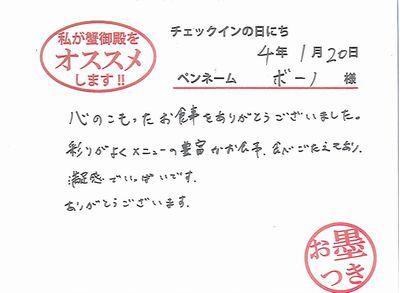 私が蟹御殿を
オススメ
します!!
チェックインの日にち
4年 1月20日
ペンネーム ボーノ 様
心のこもったお食事をありがとうございました。
彩りがよくメニューの豊富なお食事、食べごたえあり、
満足感でいっぱいです。
ありがとうございます。
お墨
つき